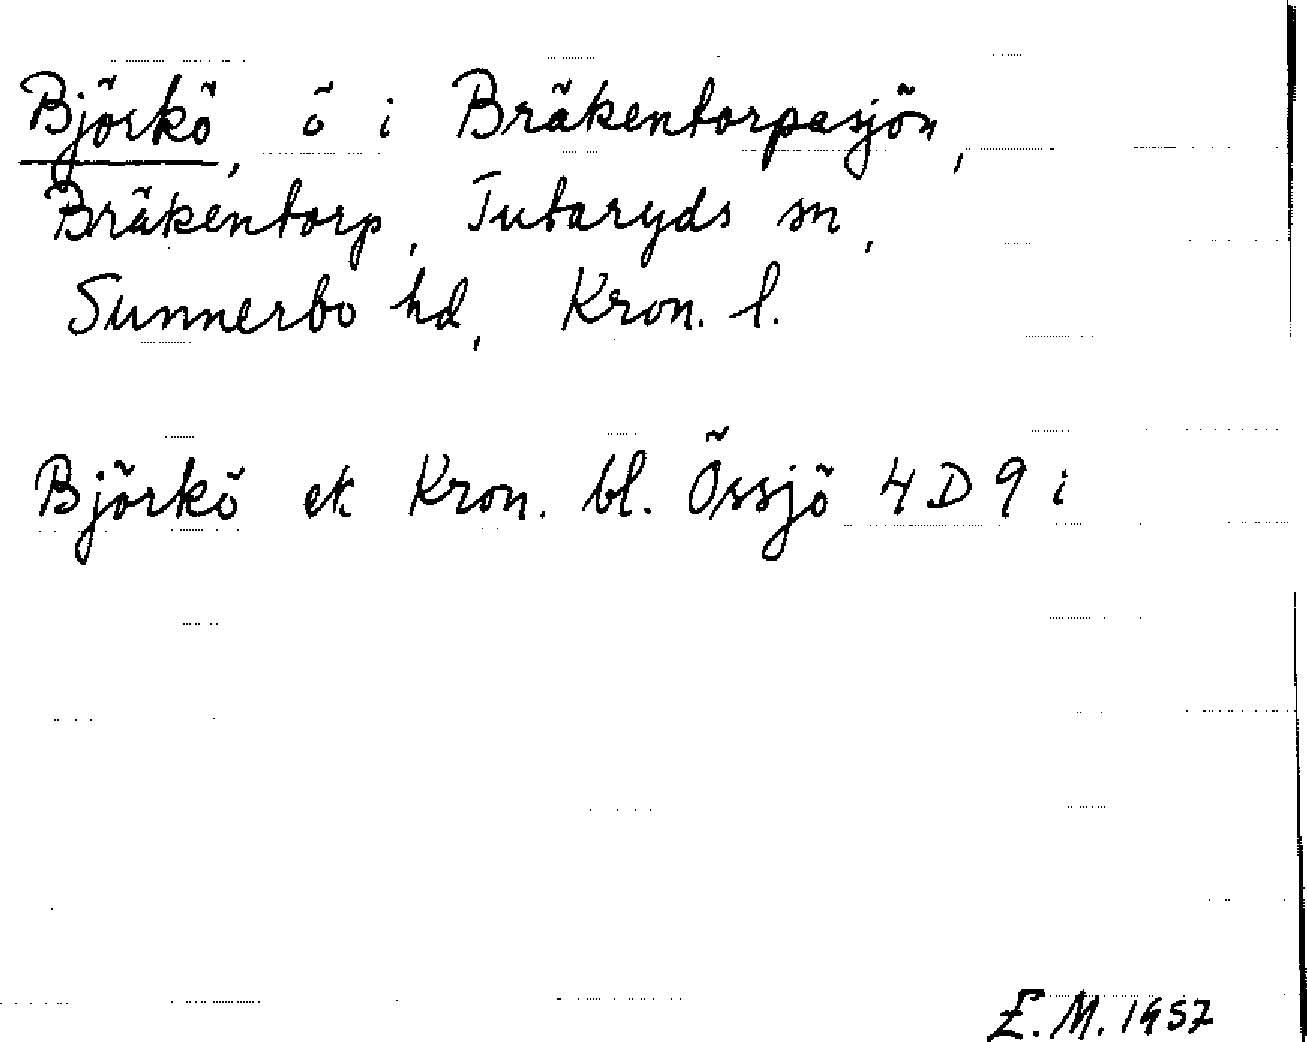 Björkö, ö i Bräkentorpasjön,
Bräkentorp, Tutaryds sn,
Sunnerbo hd, Kron. l.
Björkö ek Kron. bl. Össjö 4D9i
E.M. 1957